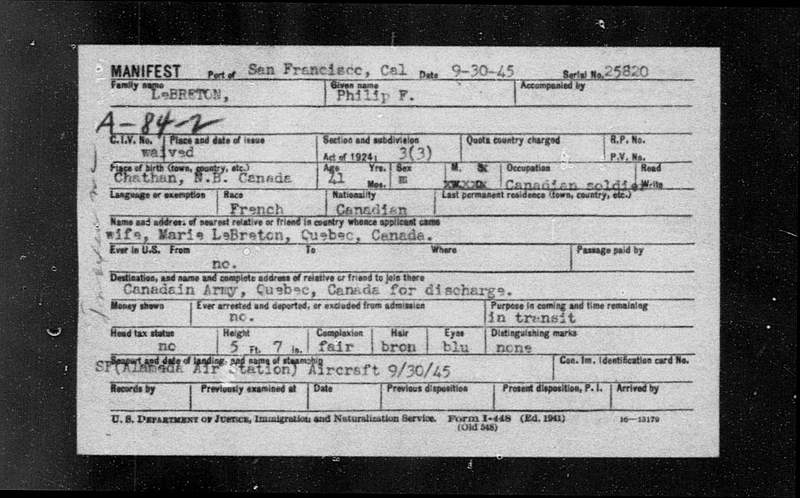 MANIFEST Port of San Francisco, Cal Date 9-30-45 Serial No. 25820
Family name Given name Accompanied by
LeBRETON, Philip F.
A-84-2
C.I.V. No. Place and date of issue Section and subdivision Quota country charged R.P. No.
waived Act of 1924: 3(3) P.V. No.
Place of birth (town, country, etc.) Age Yrs. Sex M. Occupation Read
Chathan, N.B. Canada 41 Mos. m Canadian soldier Write
Language or exemption Race Nationality Last permanent residence (town, country, etc.)
French Canadian
Name and address of nearest relative or friend in country whence applicant came
wife, Marie LeBreton, Quebec, Canada.
Ever in U.S. From To Where Passage paid by
no.
Destination, and name and complete address of relative or friend to join there
Canadain Army, Quebec, Canada for discharge.
Money shown Ever arrested and deported, or excluded from admission Purpose in coming and time remaining
no. in transit
Head tax status Height Complexion Hair Eyes Distinguishing marks
no 5 Ft. 7 In. fair bron blu none
Seaport and date of landing, and name of steamship Con. Im. Identification card No.
SF(Alameda Air Station) Aircraft 9/30/45
Records by Previously examined at Date Previous disposition Present disposition, P.I. Arrived by
U. S. DEPARTMENT OF JUSTICE, Immigration and Naturalization Service. Form I-448 (Ed. 1941) 16-13179
(Old 548)